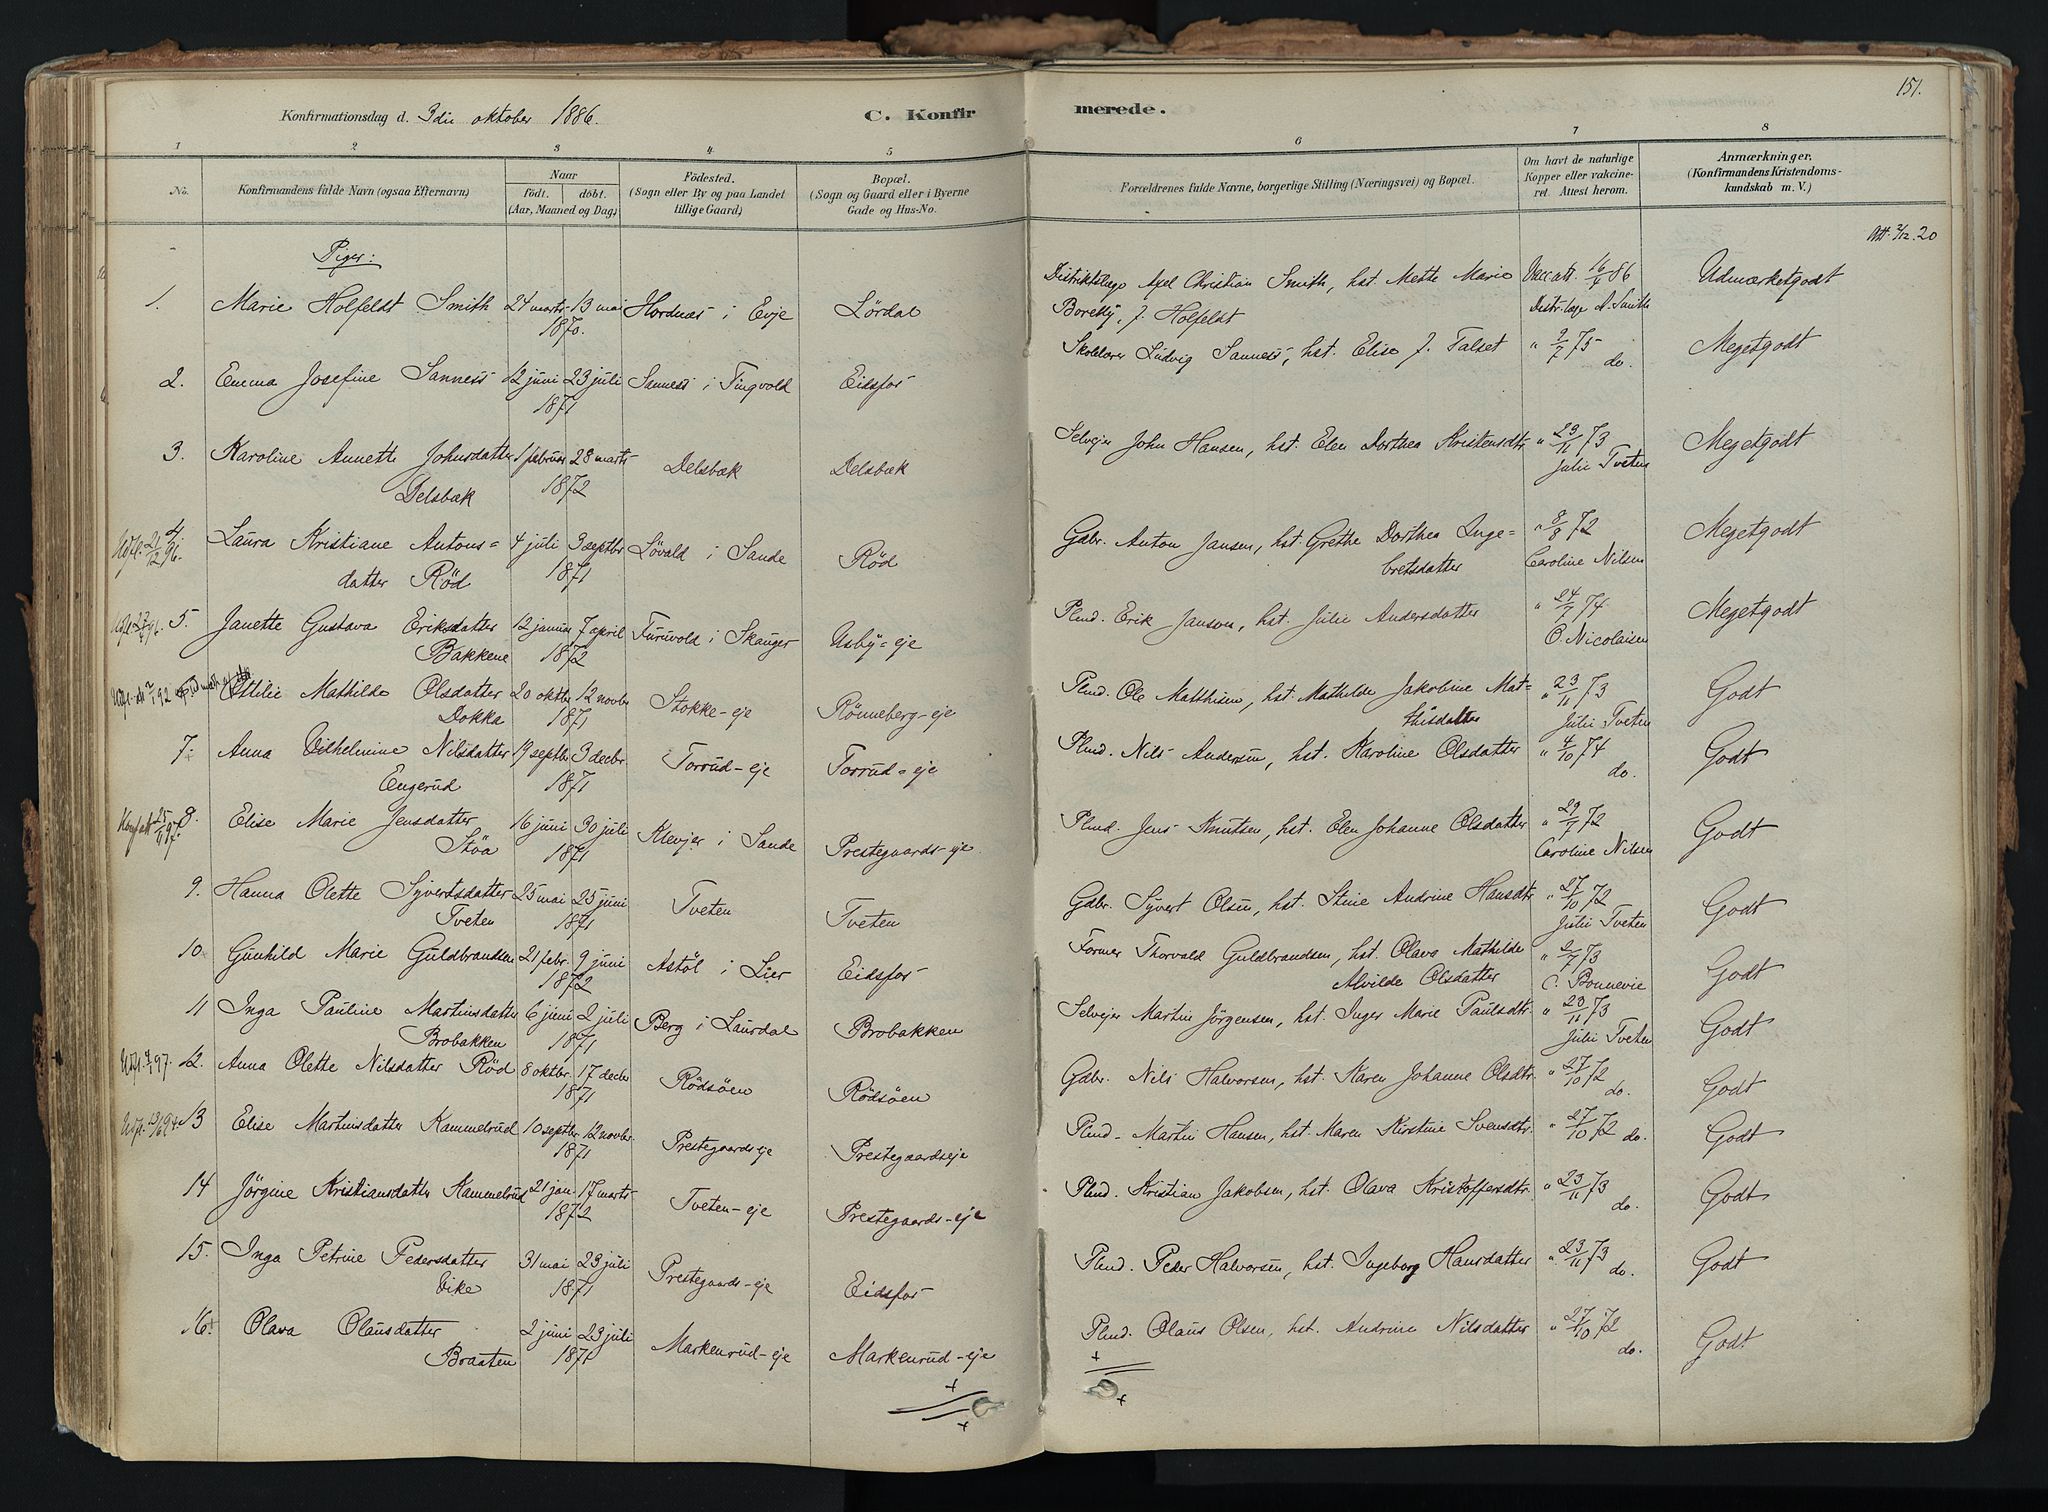 151.
Konfirmationsdag d. 3die oktober 1886. C. Konfirmerede.
1 2 3 4 5 6 7 8
No. Konfirmandens fulde Navn (ogsaa Efternavn) Naar født. døbt. (Aar, Maaned og Dag) Fødested. (Sogn eller By og paa Landet tillige Gaard) Bopæl. (Sogn og Gaard eller i Byerne Gade og Hus-No. Forældrenes fulde Navne, borgerlige Stilling (Næringsvei) og Bopæl. Om havt de naturlige Kopper eller vakcineret. Attest herom. Anmærkninger. (Konfirmandens Kristendomskundskab m. V.)
Att. 2/12.20
Piger:
1. Marie Holfeldt Smith 24 marts 13 mai 1870. Hordnæs i Evje Lördal Distriktslæge Axel Christian Smith, hst. Mette Marie Borethy, f. Holfeldt Vacc att. 16/4 86 Distr.læge A. Smith Udmærketgodt
2. Emma Josefine Sanness 12 juni 23 juli 1871 Sanness i Tingvold Eidsfos Skolelærer Ludvig Sanness, hst. Elise f. Talset " 9/7 75 do. Megetgodt
3. Karoline Annette Johnsdatter Delsbæk 1 februar 28 marts 1872 Delsbæk Delsbæk Selvejer John Hansen, hst. Elen Dorthea Kristensdtr " 23/11 73 Julie Tveten Megetgodt
Udfl. 21/12 96. 4. Laura Kristiane Antons=datter Röd 4 juli 3 septbr 1871 Lövald i Sande Röd Gdbr. Anton Jansen, hst. Grethe Dorthea Inge=bretsdatter " 8/8 72 Caroline Nilsen Megetgodt
5. Janette Gustava Eriksdatter Bakkene 12 januar 7 april 1872 Furuvold i Skauger Usby=eje Plmd. Erik Jansen, hst. Julie Andersdatter " 24/7 74 O. Nicolaisen Megetgodt
Ottilie Mathilde Olsdatter Dokka 20 oktbr 12 novbr 1871 Stokke-eje Rönneberg-eje Plmd. Ole Matthisen, hst. Mathilde Jakobine Mat=thisdatter " 23/11 73 Julie Tveten Godt
7. Anna Vilhelmine Nilsdatter Engerud 19 septbr 3 decbr. 1871 Torrud-eje Torrud=eje Plmd. Nils Andersen, hst. Karoline Olsdatter " 4/10 74 do. Godt
8. Elise Marie Jensdatter Stöa 16 juni 30 juli 1871 Klevjer i Sande Prestegaards-eje Plmd. Jens Knutsen, hst. Elen Johanne Olsdatter " 29/7 72 Caroline Nilsen Godt
9. Hanna Olette Syvertsdatter Tveten 25 mai 25 juni 1871 Tveten Tveten Gdbr. Syvert Olsen, hst. Stine Andrine Hansdtr " 27/10 72 Julie Tveten Godt
10. Gunhild Marie Guldbrandsen 21 febr. 9 juni 1872 Astöl i Lier Eidsfos Former Thorvald Guldbrandsen, hst. Olava Mathilde Alvilde Olsdatter " 2/7 73 C. Bonnevie Godt
11 Inga Pauline Martinsdatter Brobakken 6 juni 2 juli 1871 Berg i Laurdal Brobakken Selvejer Martin Jörgensen, hst. Inger Marie Paulsdtr. " 23/11 73 Julie Tveten Godt
12. Anna Olette Nilsdatter Röd 8 oktbr. 17 decbr 1871 Rödsöen Rödsöen Gdbr. Nils Halvorsen, hst. Karen Johanne Olsdtr. " 27/10 72 do. Godt
13 Elise Martinsdatter Kammelrud 10 septbr 12 novbr. 1871 Prestegaards eje Prestegaardseje Plmd. Martin Hansen, hst. Maren Kirstine Svensdtr. " 27/10 72 do. Godt
14 Jörgine Kristiansdatter Kammelrud 21 jan. 17 marts 1872 Tveten-eje Prestegaards-eje Plmd. Kristian Jakobsen, hst. Olava Kristoffersdtr. " 23/11 73 do. Godt
15. Inga Petrine Pedersdatter Vike 31 mai 23 juli 1871 Prestegaards-eje Eidsfos Plmd. Peder Halvorsen, hst. Ingeborg Hansdatter " 23/11 73 do. Godt
16. Olava Olausdatter Braaten 2 juni 23 juli 1871 Markenrud-eje Markenrud-eje Plmd. Olaus Olsen, hst. Andrine Nilsdatter " 27/10 72 do. Godt